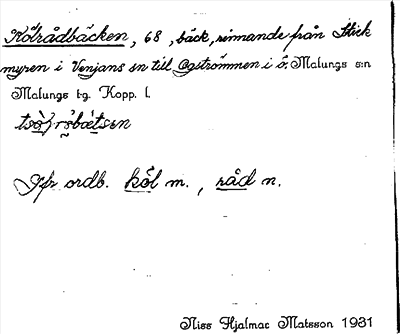 Kölrådbäcken, 68, bäck, rinnande från Stick
myren i Venjans sn till Ogströmmen i ö. Malungs s:n
Malungs tg. Kopp. l.
Jfr ordb. köl m., råd n.
Niss Hjalmar Matsson 1931